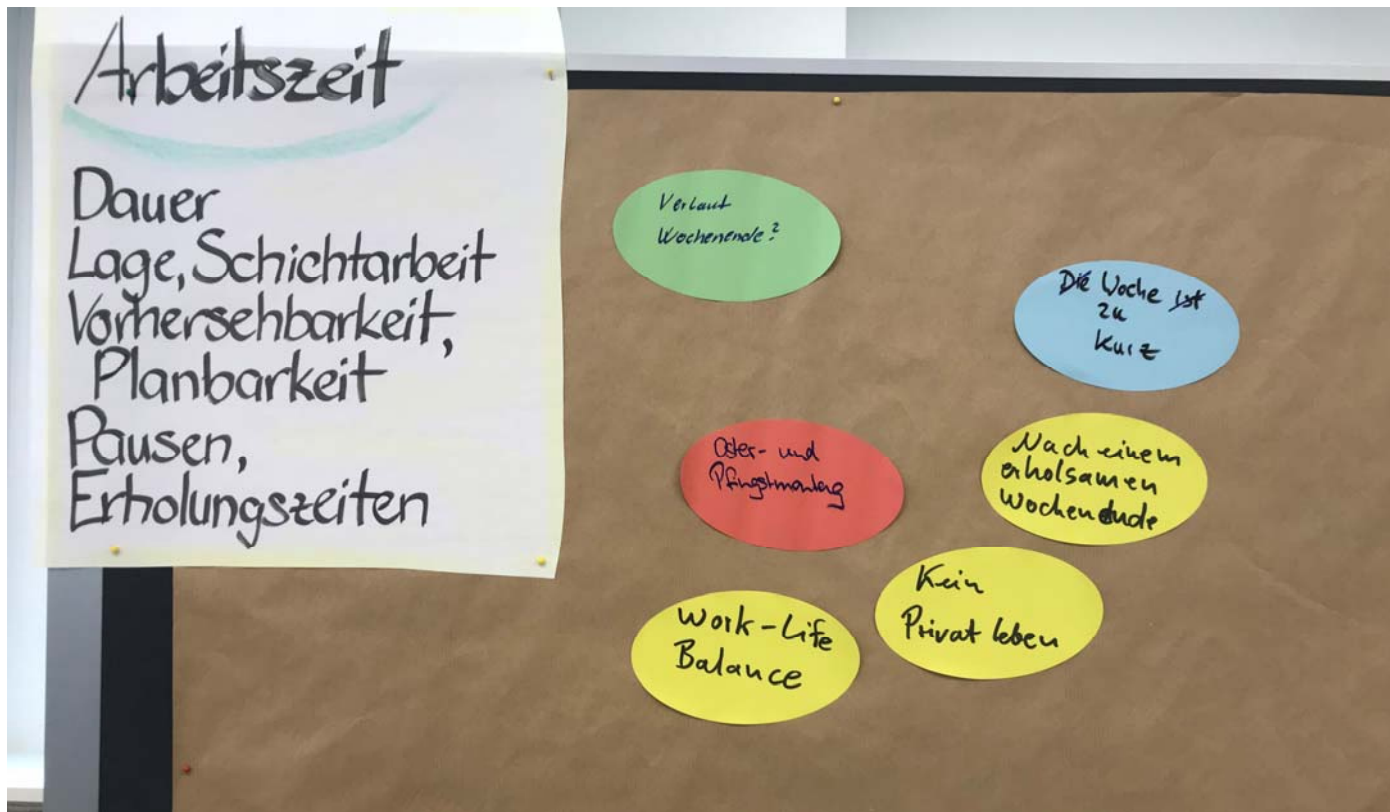 Arbeitszeit
Dauer
Lage, Schichtarbeit
Vorhersehbarkeit,
Planbarkeit
Pausen,
Erholungszeiten
Verlauf
Wochenende?
Die Woche ist
zu
kurz
Oster- und
Pfingstmontag
Nach einem
erholsamen
Wochenende
Kein
Privatleben
Work-Life
Balance